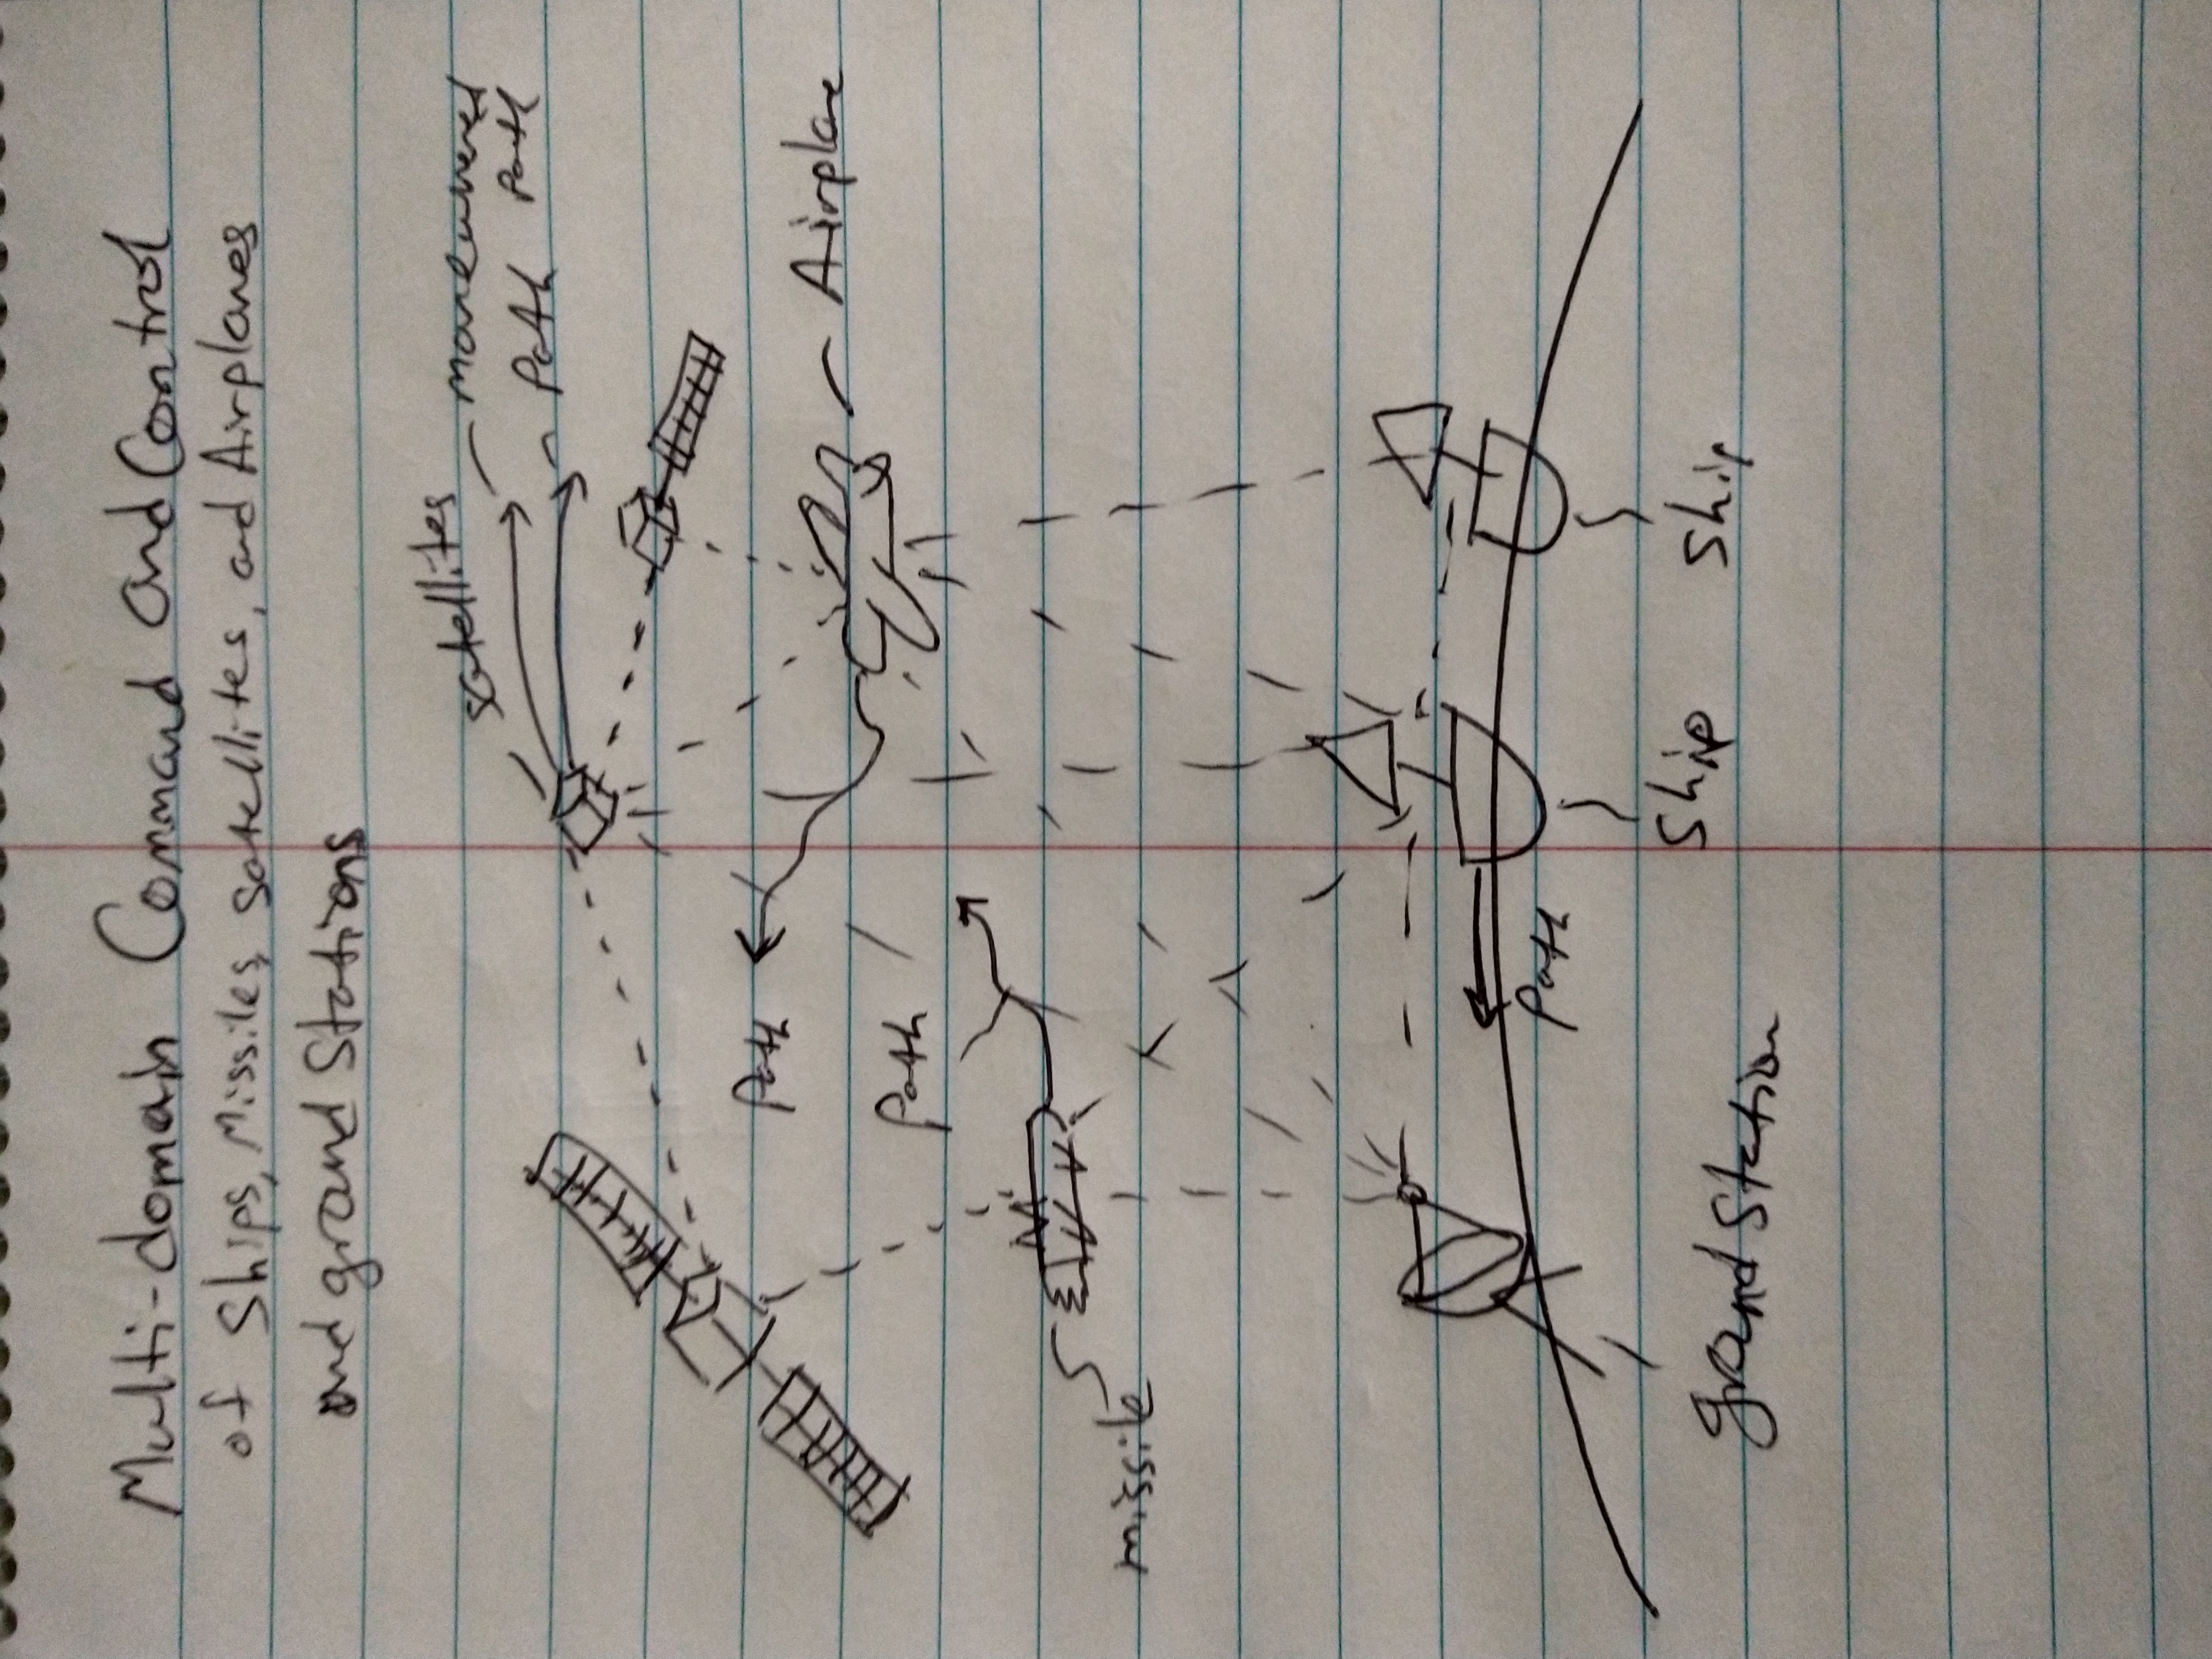 Multi-domain Command and Control
of Ships, Missiles, Satellites, and Airplanes
and ground Stations
satellites
maneuvered
Path Path
Path
Airplane
Path
missile
Path
Ship
Ship
ground Station